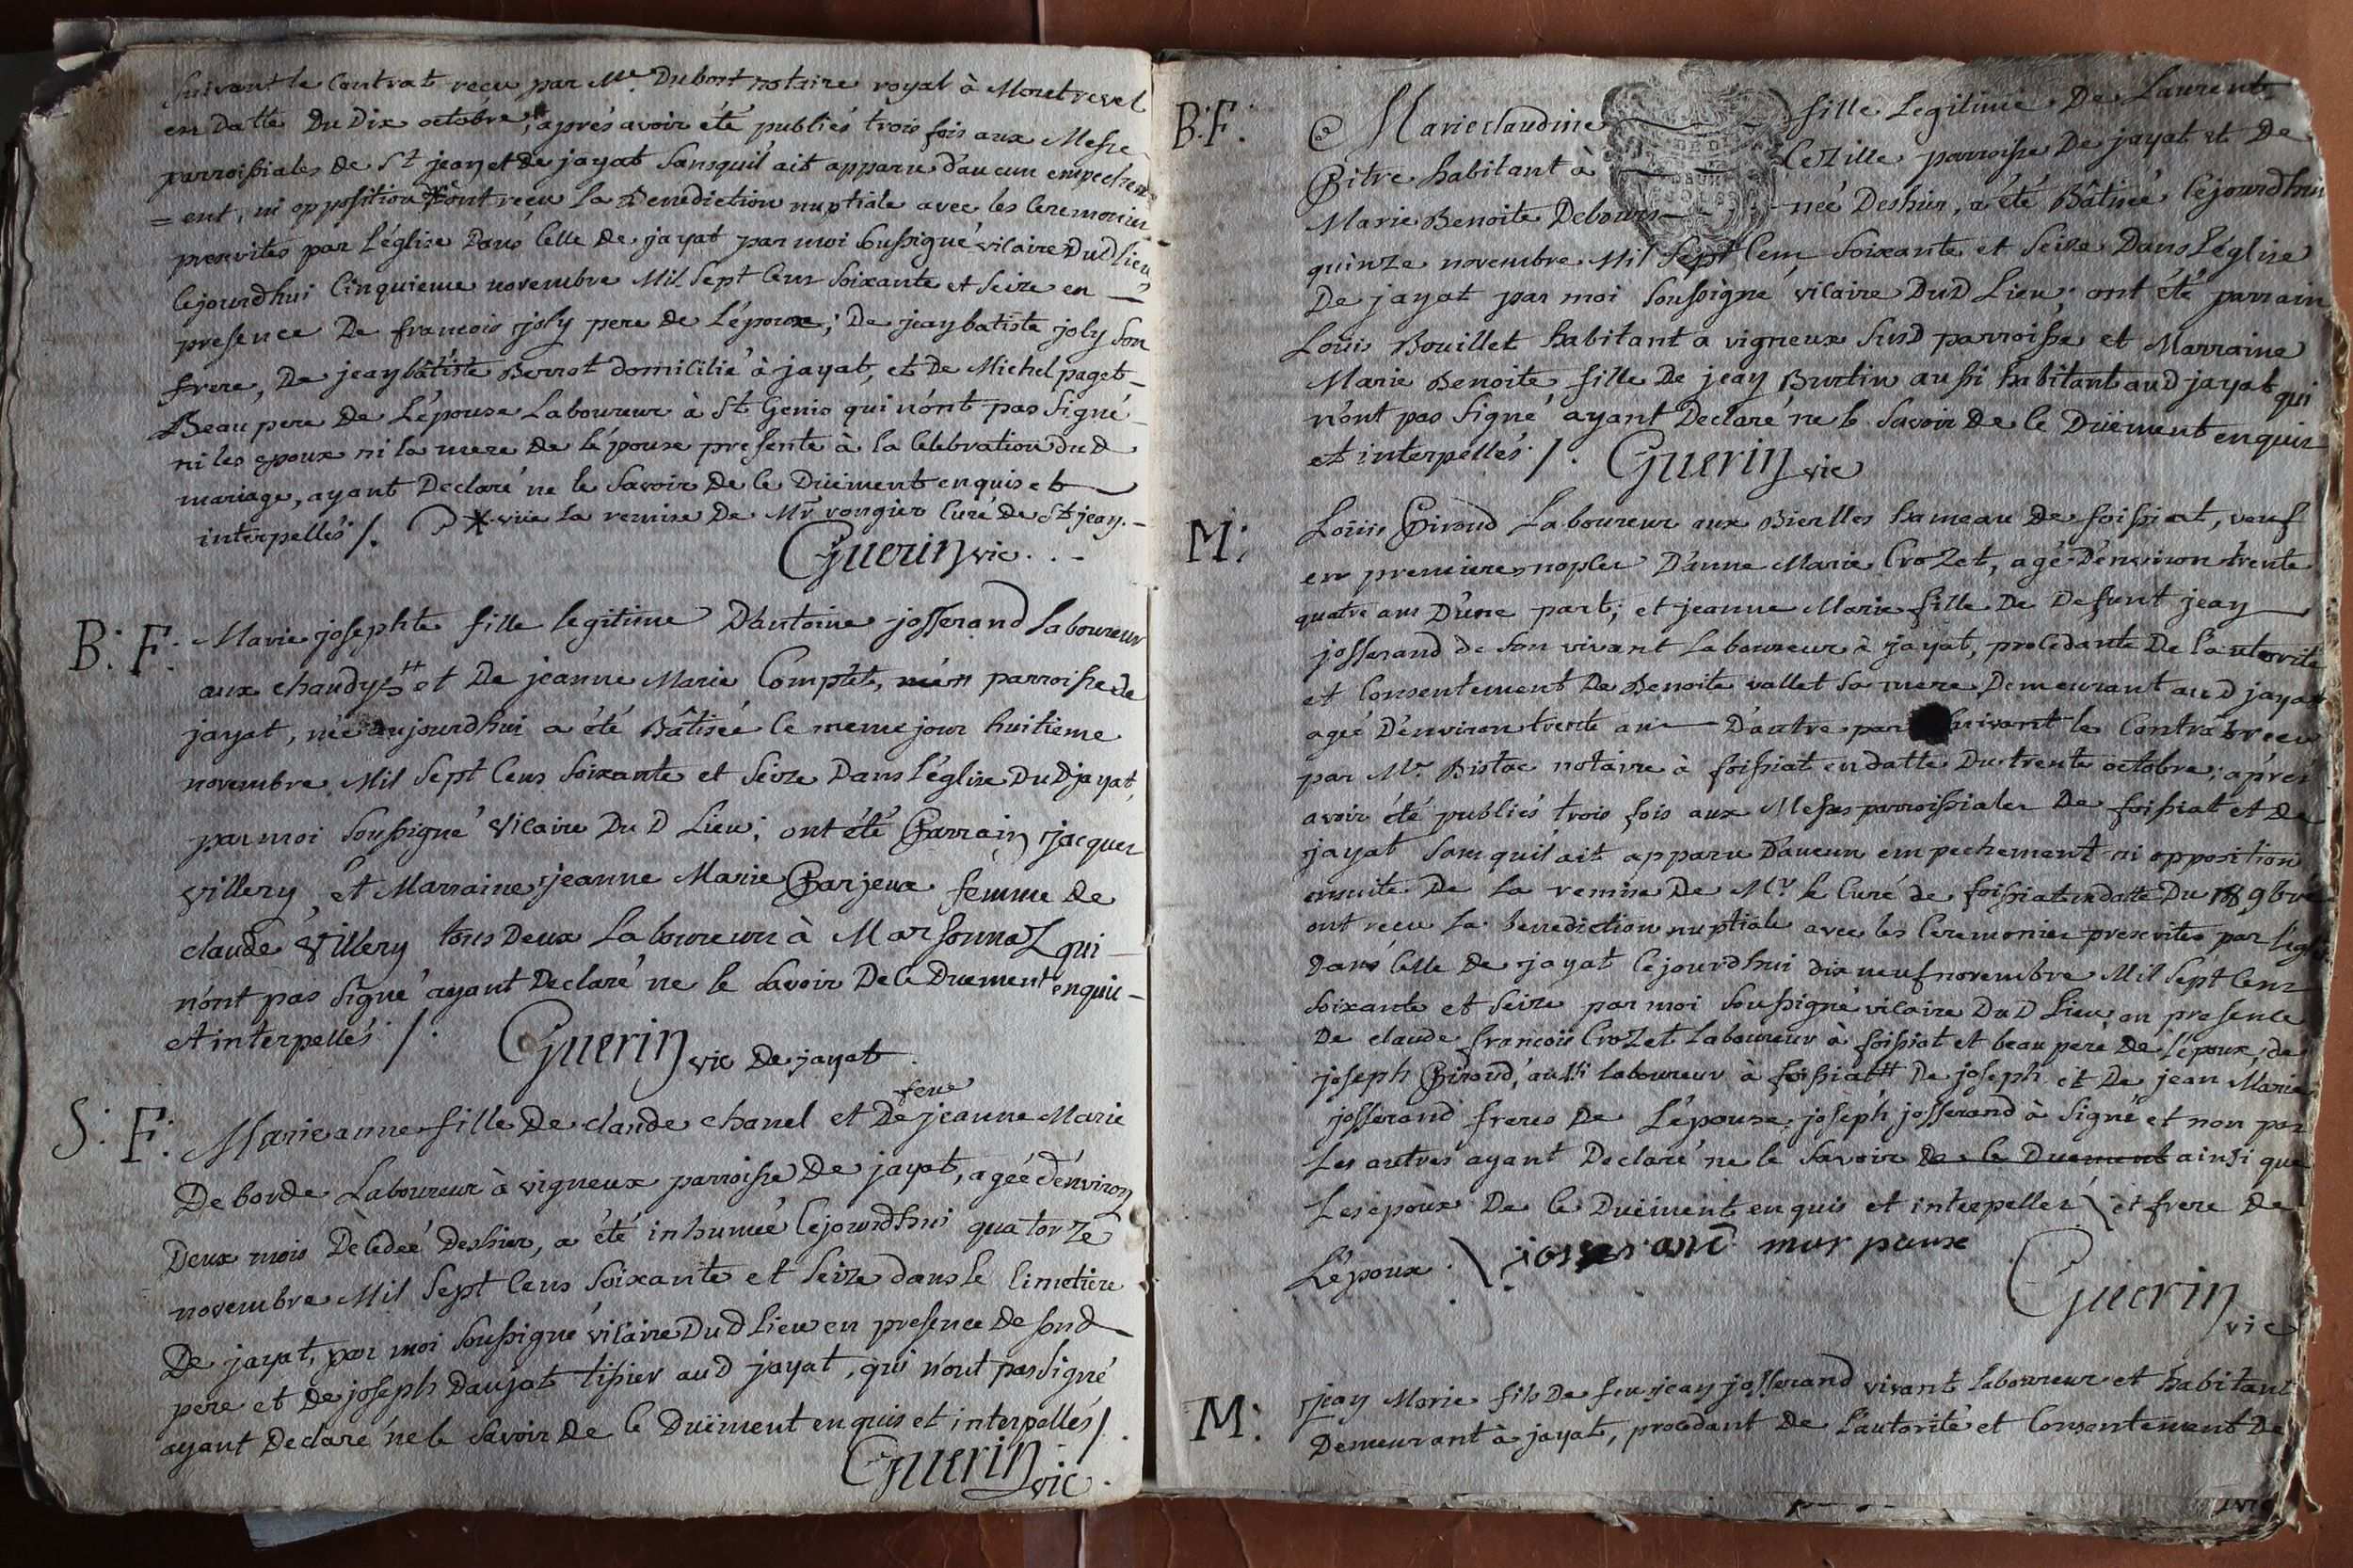 suivant le Contrat reçu par Me. Dubost notaire royal à Montrevel
en datte du dix octobre; après avoir été publiés trois fois aux Messe
parroissiales de St jean et de jayat sans quil ait apparu d'aucun empechem
= ent, ni opposition * ont reçu la Benediction nuptiale avec les Ceremonies
prescrites par l'église dans celle de jayat par moi soussigné vicaire dud lieu
cejourdhui Cinquieme novembre Mil Sept Cens Soixante et Seize en
presence de francois joly pere de L'époux; De jean batiste joly son
frere, De jean bâtiste Berrot domicilié à jayat, et De Michel paget
Beau pere de L'épouse Laboureur à St Genis qui n'ont pas Signé
ni les epoux ni la mere de l'épouse presente à la Celebration dud
mariage, ayant Declaré ne le Savoir de ce Düement enquis et
interpellés /. * vüe La remise De Mr. rongier Curé de St jean.
Guerin vic.
B: F: Marie josephte fille legitime D'antoine josserand laboureur
aux chaudys et De jeanne Marie Comptet, parroisse de
jayat, née aujourdhui a été Bâtisée le meme jour huitieme
novembre Mil Sept Cens Soixante et Seize Dans l'église Dud jayat,
par moi Soussigné Vicaire Du D Lieu; ont été Parrain jacques
villery, et Marraine jeanne Marie Parjeux femme de
claude Villery tous Deux Laboureurs à Marsonnaz qui
n'ont pas Signé ayant Declaré ne le Savoir De ce Duement enquis
et interpellés /. Guerin vic De jayat.
S: F: Marie anne fille De claude chanel et De feue jeanne Marie
De borde Laboureur à vigneux parroisse De jayat, agée d'environ
Deux mois Décedée Deshier, a été inhumée Cejourdhui quatorze
novembre Mil Sept Cens Soixante et Seize dans le Cimetiere
De jayat, par moi Soussigné vicaire Dud Lieu en presence De Sond
pere et de joseph Daujat tissier aud jayat, qui n'ont pas Signé
ayant Declaré ne le Savoir De ce Düement enquis et interpellés /.
Guerin vic.
B: F: Marie claudine fille Legitime De Laurent
Pitre habitant à Cezille parroisse De jayat et De
Marie Benoite Debours née Deshier, a été Bâtisée Cejourdhui
quinze novembre Mil Sept Cens Soixante et Seize Dans l'église
De jayat par moi Soussigné vicaire Dud Lieu; ont été parrain
Loüis Bouillet habitant a vigneux Susd parroisse et Marraine
Marie Benoite fille De jean Burtin aussi habitant aud jayat qui
n'ont pas Signé ayant Declaré ne le Savoir De ce Düement enquis
et interpellés /. Guerin vic
M: Loüis Piroud Laboureur aux Bierlles hameau De foissiat, veuf
en premieres nopces D'anne Marie Crozet, agé D'environ trente
quatre ans D'une part; et jeanne Marie fille De Defunt jean
josserand de son vivant Laboureur à jayat, procedante De l'autorité
et Consentement De Benoite vallet Sa mere Demeurant aud jayat
agée D'environ trente ans D'autre part suivant le Contrat recu
par Me. Bistac notaire à foissiat en datte Du trente octobre; après
avoir été publiés trois fois aux Messes parroissiales De foissiat et De
jayat Sans quil ait apparu D'aucun empechement ni opposition
ensuite De La remise De Mr. le Curé de foissiat en datte Du 18 9bre
ont reçu La benediction nuptiale avec les Ceremonies prescrites par l'église
Dans Celle De jayat Cejourdhui dix neuf novembre Mil Sept Cens
Soixante et Seize par moi Soussigné vicaire Dud Lieu en presence
De claude francois Crozet Laboureur à foissiat et beau pere De l'époux, de
joseph Piroud, aussi laboureur à foissiat De joseph et De jean Marie
josserand freres De L'épouse; joseph josserand à Signé et non pas
Les autres ayant Declaré ne le Savoir De ce Duement ainsi que
Les époux De ce Düement enquis et interpellés \ et frere De
L'époux. \ josserand
Guerin
vic
M: jean Marie fils De feu jean josserand vivant laboureur et habitant
Demeurant à jayat, procedant De L'autorité et Consentement De